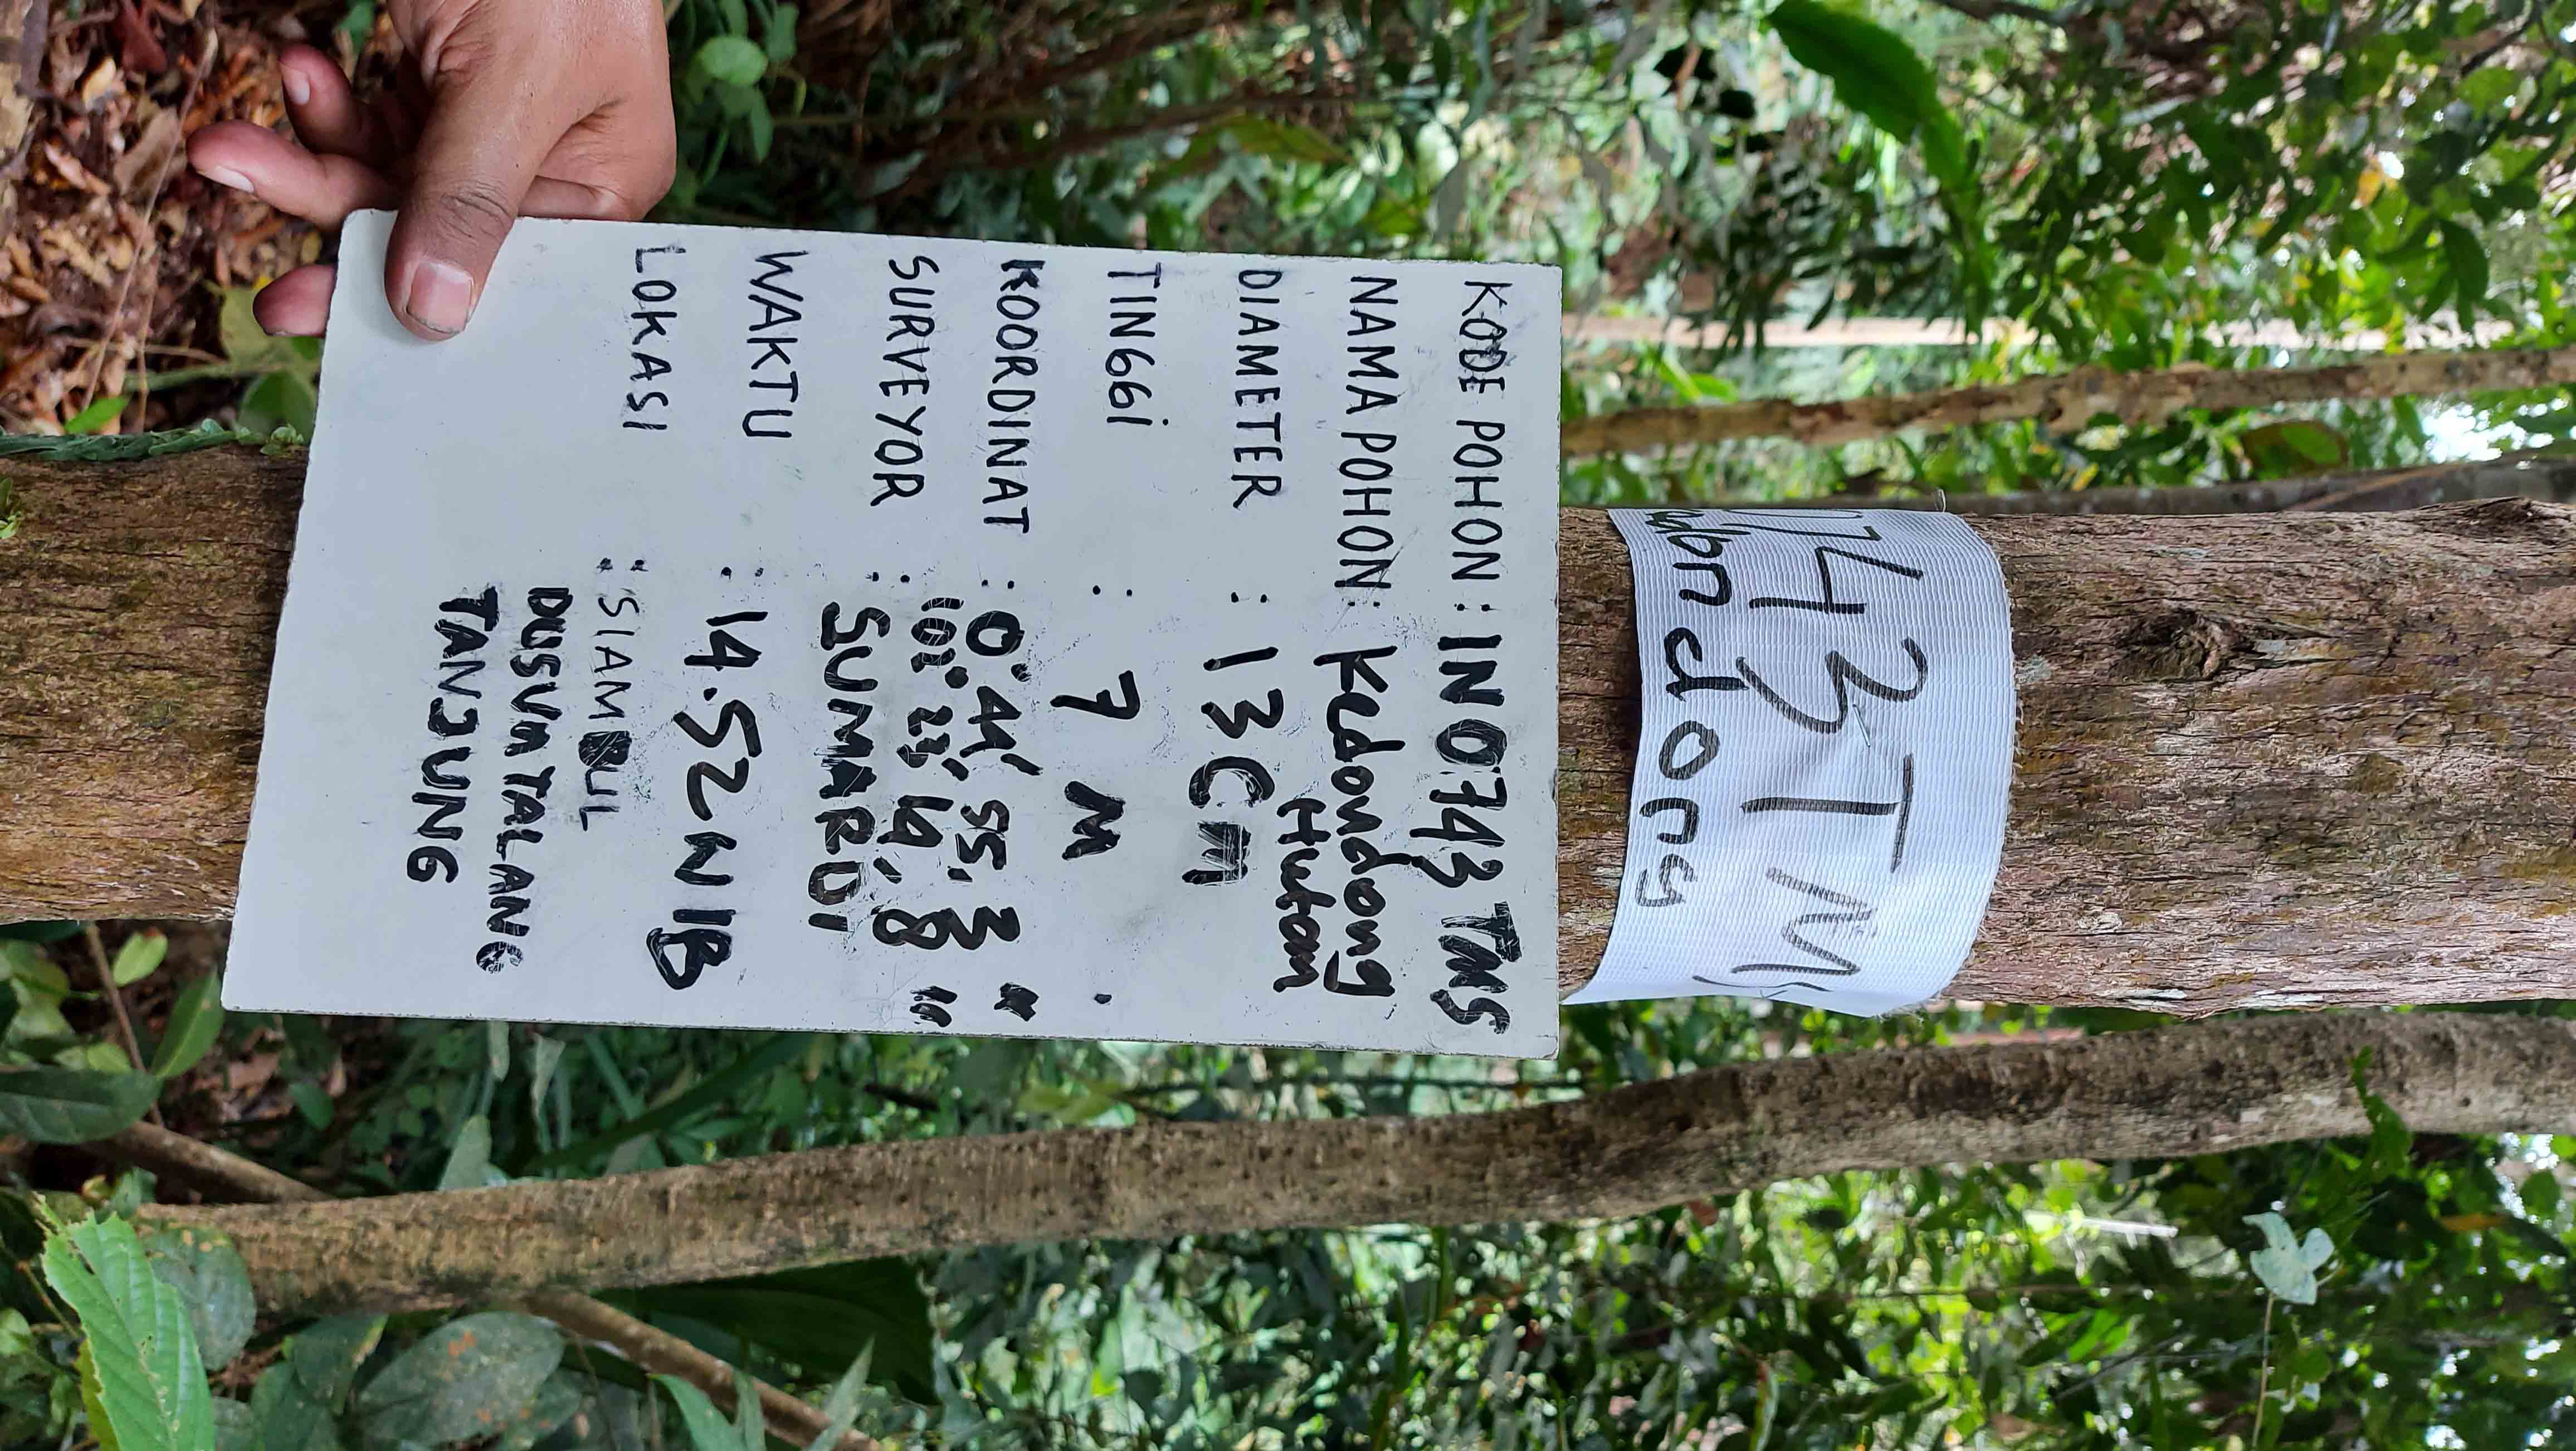 743 TMS
edondong
KODE POHON : IN 0743 TMS
NAMA POHON : Kedondong
Hutan
DIAMETER : 13 Cm
TINGGi : 7 M
KOORDINAT : 0° 44' 55, 3 "
23' 14, 8 "
SURVEYOR : SUMARDi
WAKTU : 14.52 WIB
LOKASI : SIAMBUL
DUSUn TALANG
TANJUNG